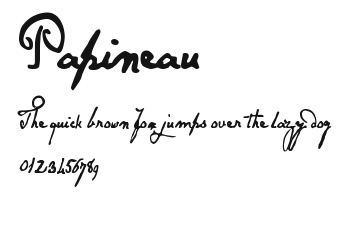 Papineau
The quick brown fox jumps over the lazy dog
0123456789